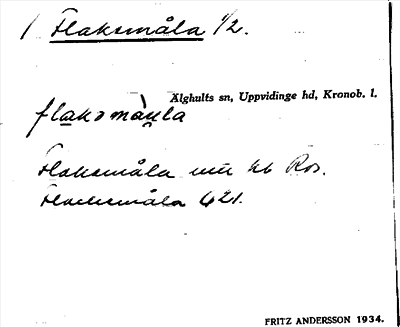 / Flaksmåla 1/2.
Älghults sn, Uppvidinge hd, Kronob. l.
flaksmàula
Flaksmåla
Flaksmåla 421.
FRITZ ANDERSSON 1934.